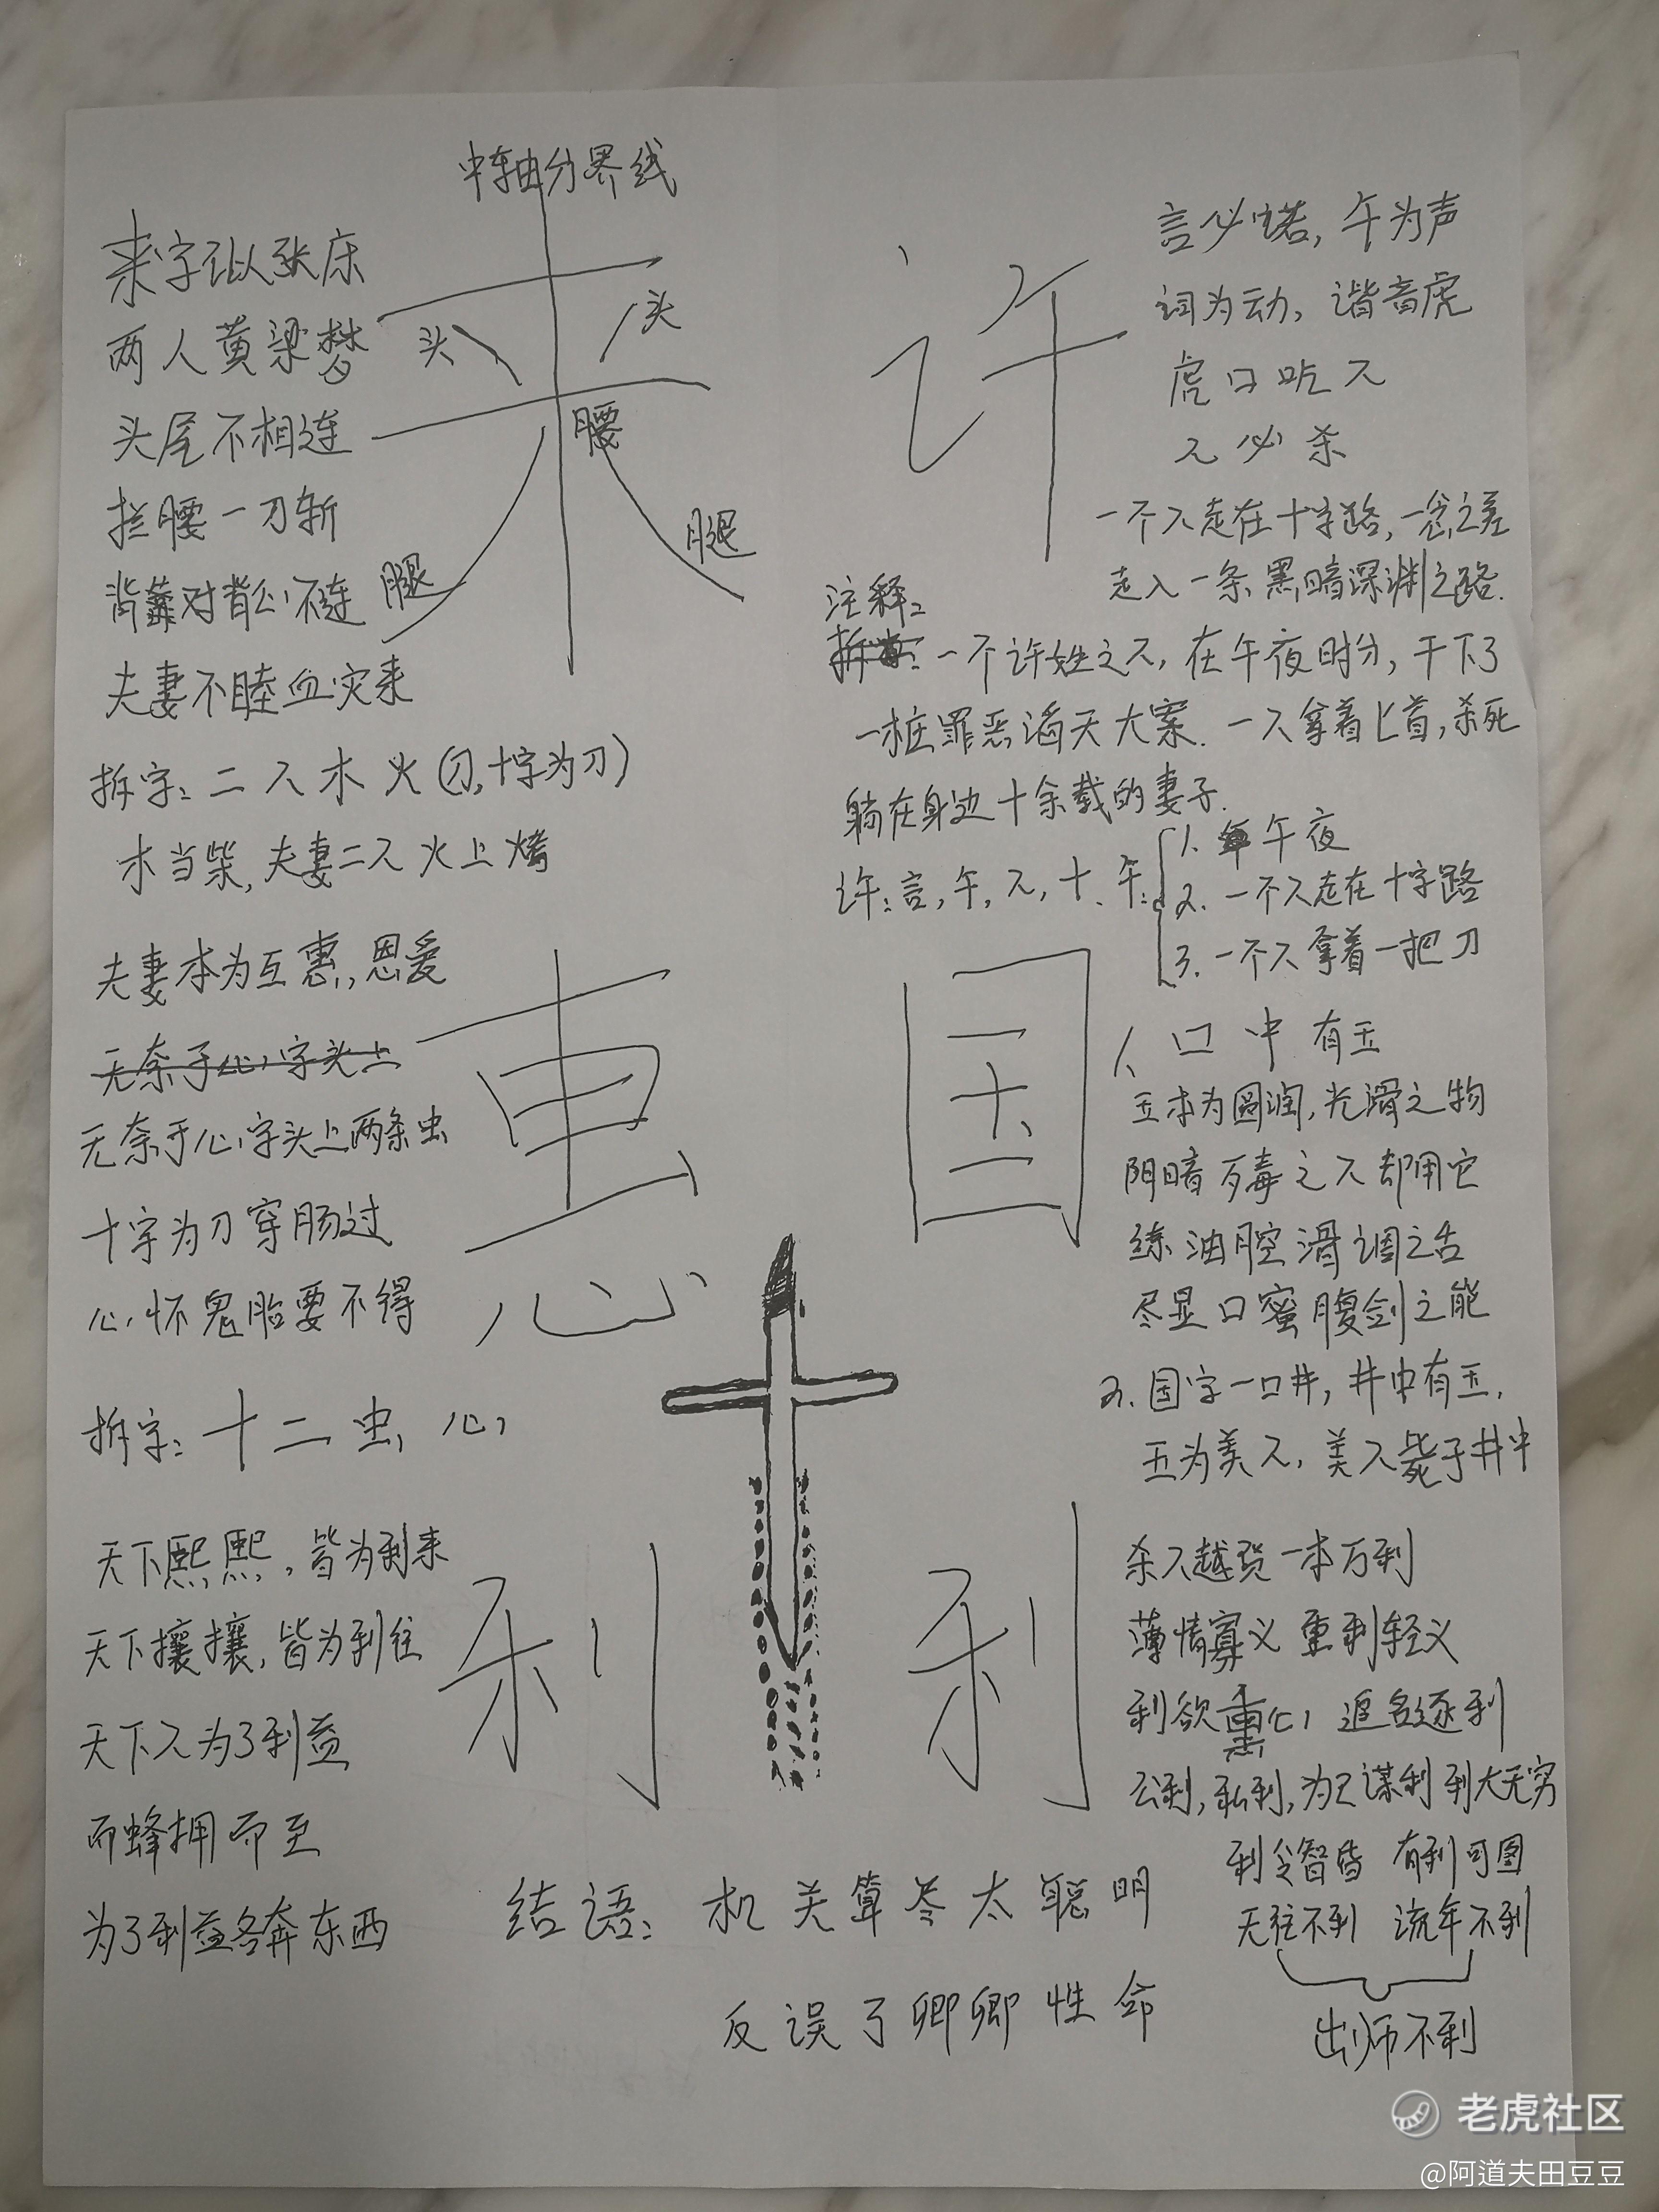 中轴分界线
来字似张床
两人黄梁梦
头尾不相连
拦腰一刀斩
背靠对背心不连
夫妻不睦血灾来
拆字：二人木火（刀，十字为刀）
木当柴，夫妻二人火上烤
来
头
头
腰
腿
腿
许
言必诺，午为声
词为动，谐音虎
虎口吃人
人必杀
一个人走在十字路，一念之差
走入一条黑暗深渊之路.
注释：
一个许姓之人，在午夜时分，干下了
一桩罪恶滔天大案.一人拿着匕首，杀死
躺在身边十余载的妻子.
许：言，午，人，十、午：
1、午夜
2.一个人走在十字路
3.一个人拿着一把刀
夫妻本为互惠，恩爱
无奈于心字头上
无奈于心字头上两条虫
十字为刀穿肠过
心怀鬼胎要不得
拆字：十二虫心
惠
国
1、口中有玉
玉本为圆润，光滑之物
阴暗歹毒之人却用它
练油腔滑调之舌
尽显口蜜腹剑之能
2.国字一口井，井中有玉，
玉为美人，美人毙于井中
天下熙熙，皆为利来
天下攘攘，皆为利往
天下人为了利益
而蜂拥而至
为了利益各奔东西
利
利
杀人越货一本万利
薄情寡义 重利轻义
利欲熏心 追名逐利
公利，私利，为己谋利 利大无穷
利令智昏 有利可图
无往不利 流年不利
出师不利
结语：机关算尽太聪明
反误了卿卿性命
老虎社区
@阿道夫田豆豆